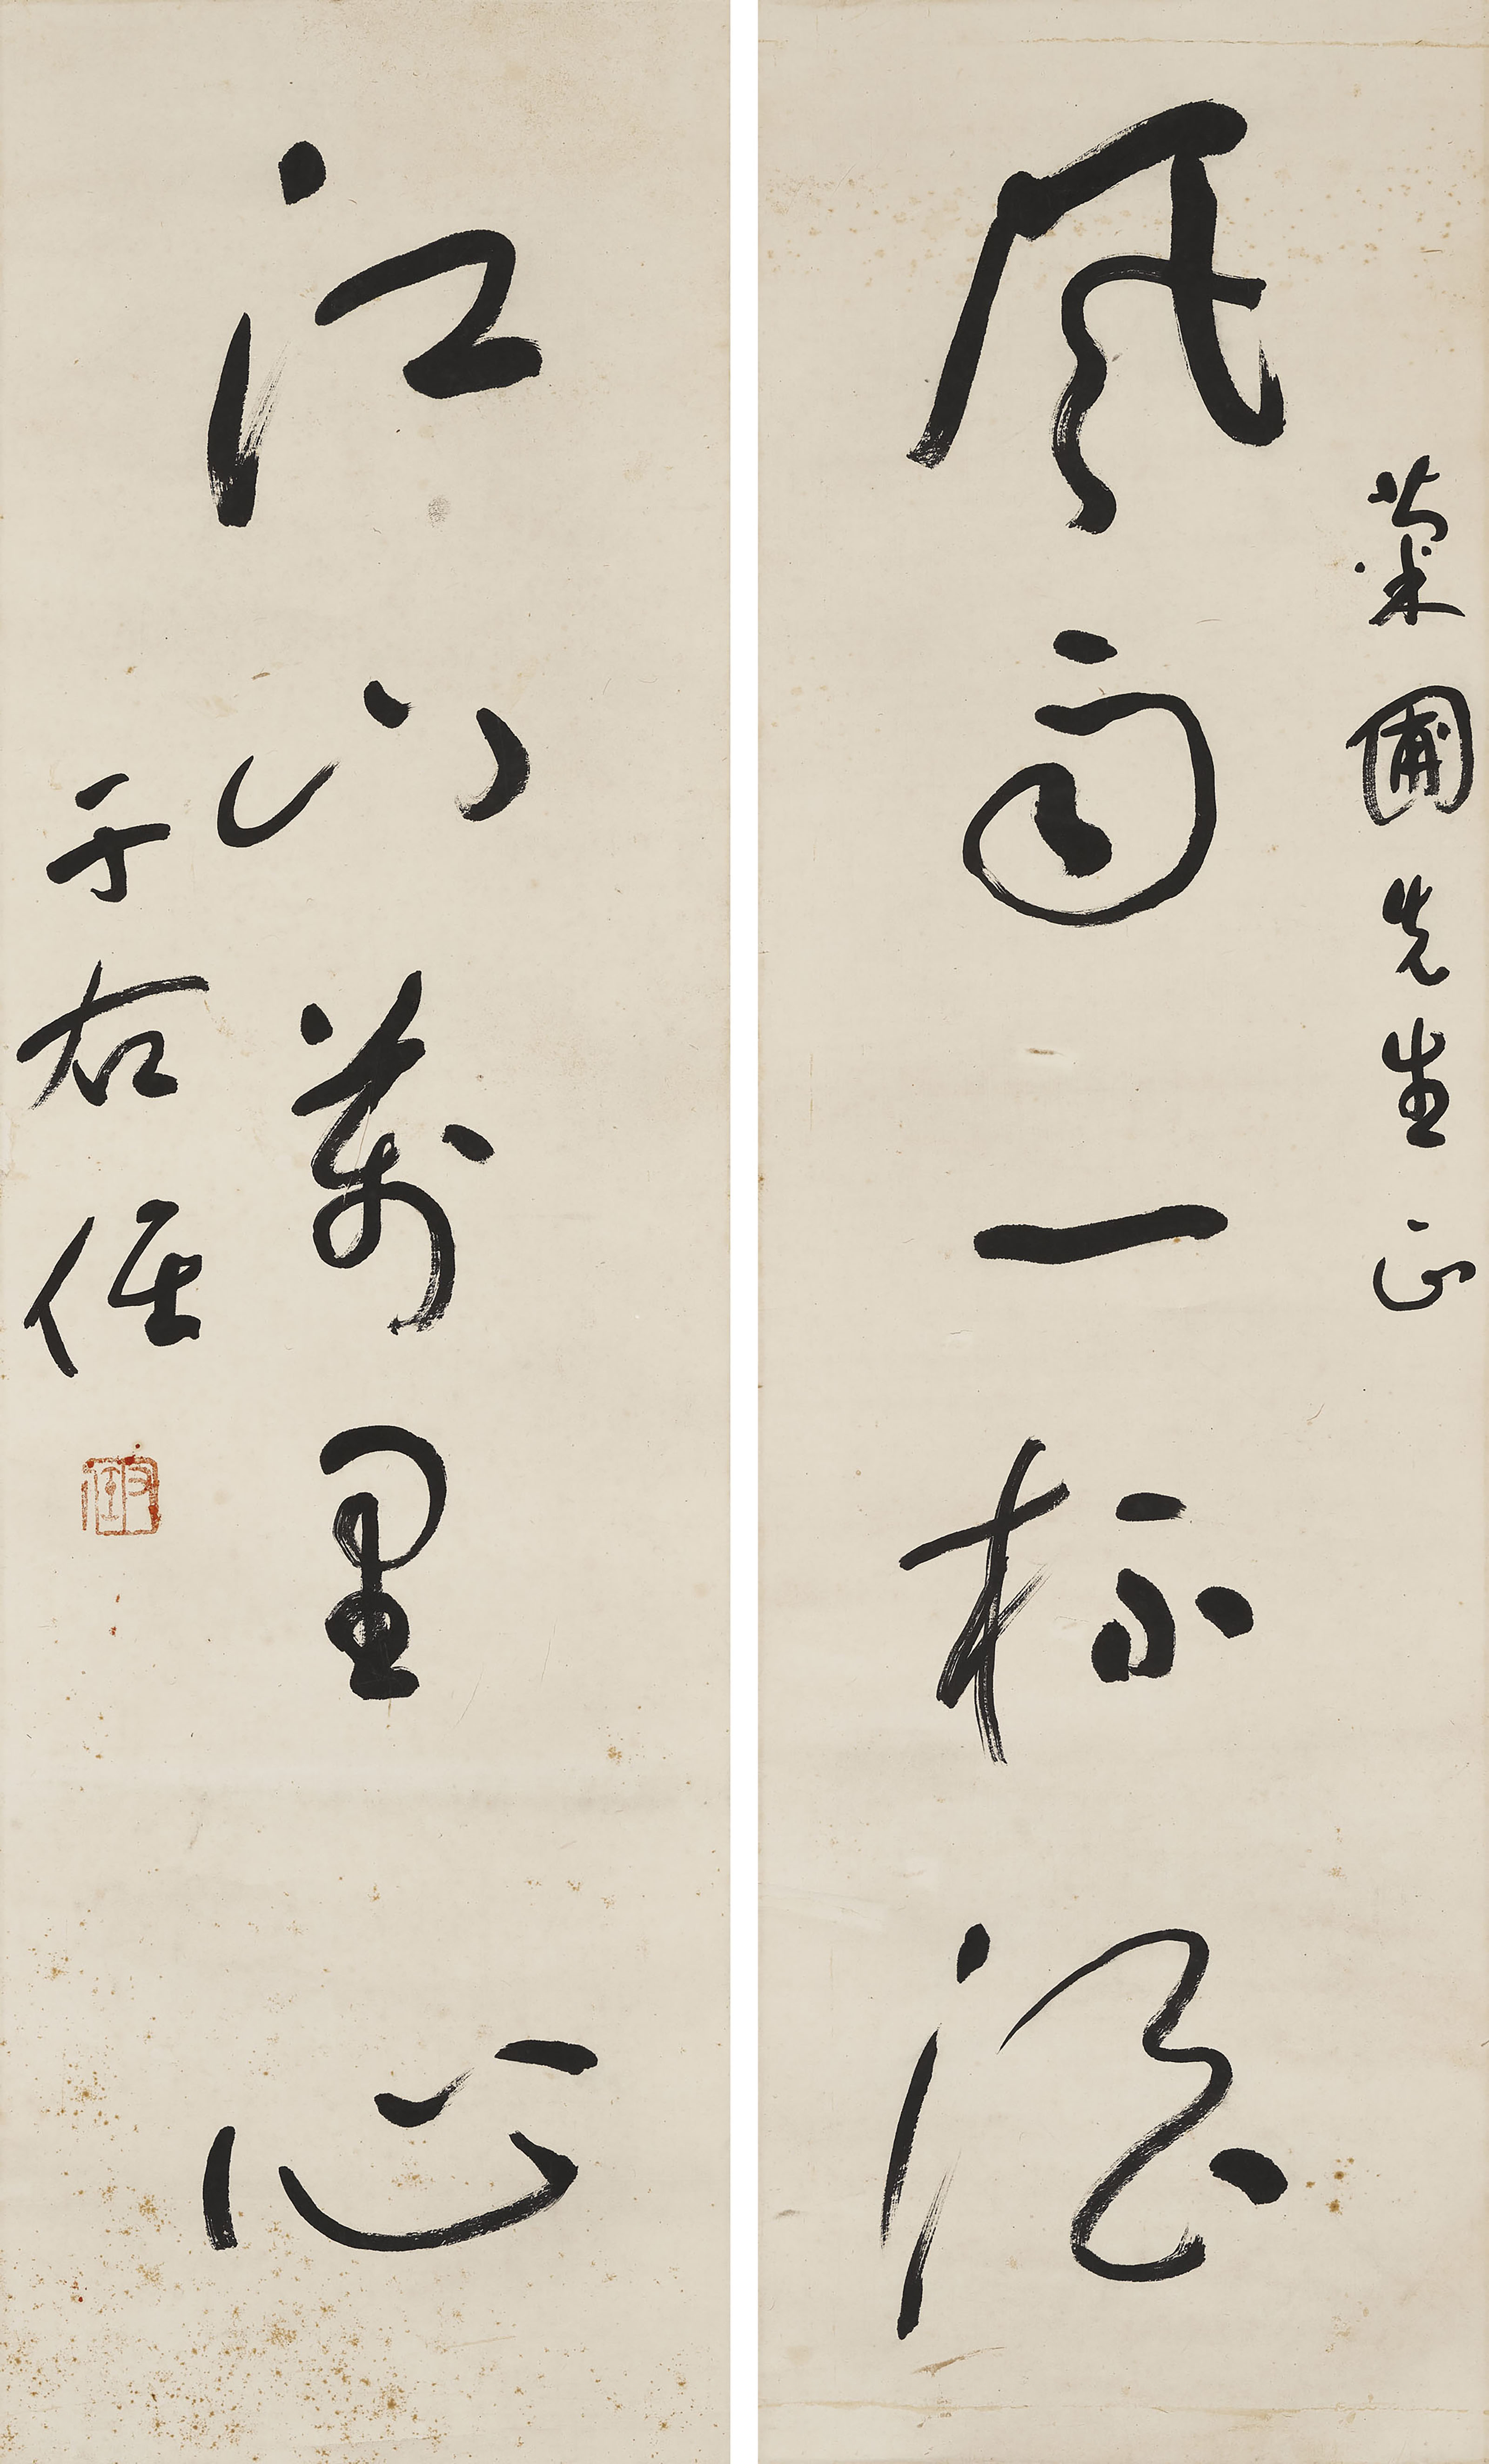 菊圃先生正
風雨一杯酒
江山萬里心
于右任
右任